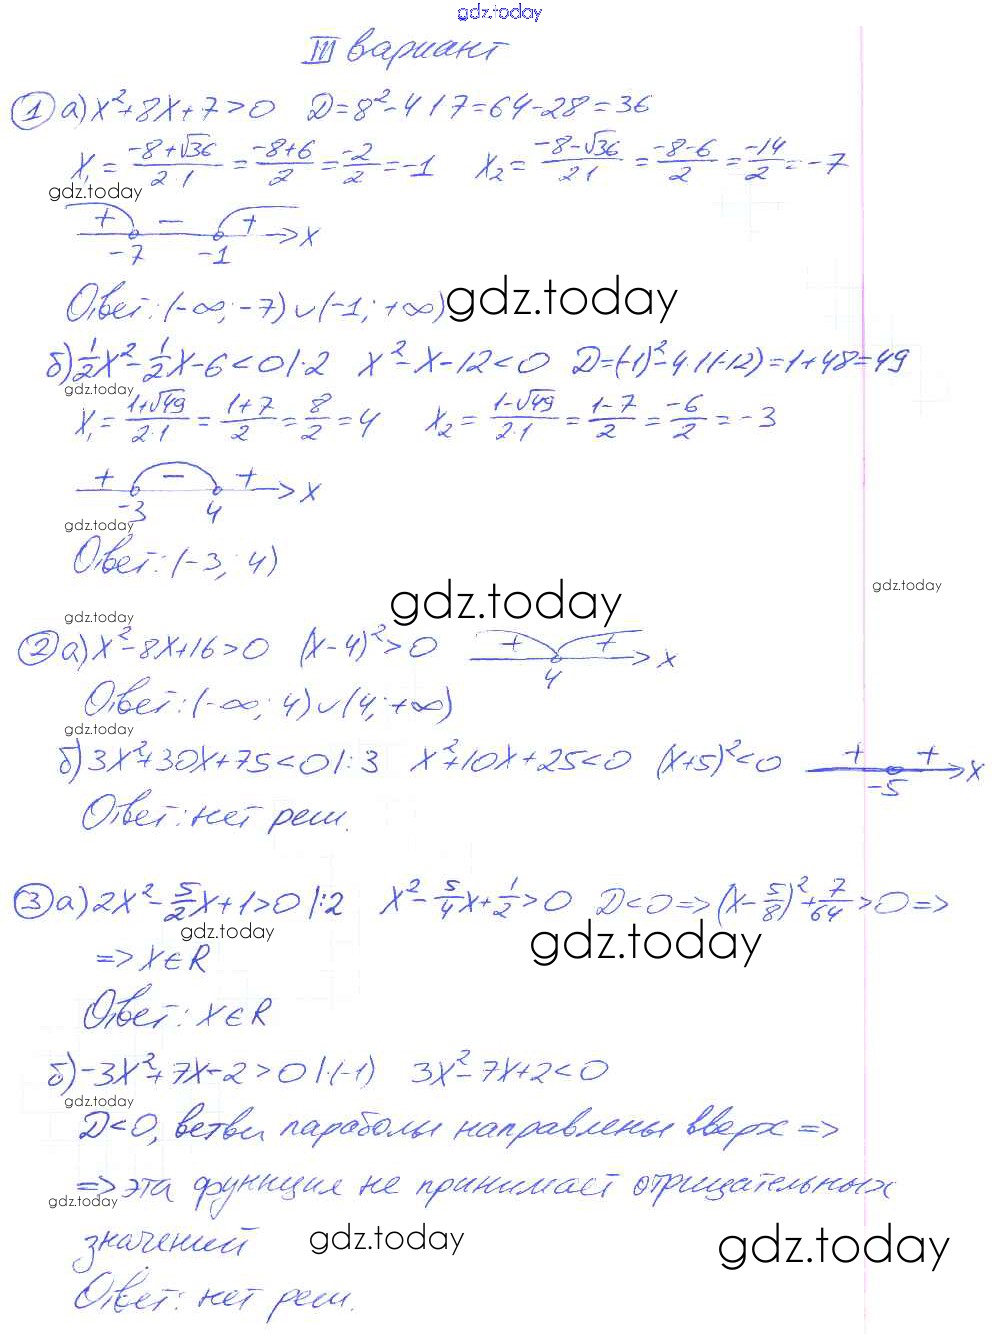 gdz.today
III вариант
1 а) x²+8x+7>0 D=8²-4·1·7=64-28=36
x₁=(-8+√36)/(2·1)=(-8+6)/2=-2/2=-1 x₂=(-8-√36)/(2·1)=(-8-6)/2=-14/2=-7
gdz.today
+ − + x
-7 -1
Ответ: (-∞; -7)∪(-1; +∞) gdz.today
б) 1/2x²-1/2x-6<0 |·2 x²-x-12<0 D=(-1)²-4·1·(-12)=1+48=49
gdz.today
x₁=(1+√49)/(2·1)=(1+7)/2=8/2=4 x₂=(1-√49)/(2·1)=(1-7)/2=-6/2=-3
+ − + x
-3 4
gdz.today
Ответ: (-3; 4)
gdz.today
gdz.today
gdz.today
2 а) x²-8x+16>0 (x-4)²>0 + + x
4
Ответ: (-∞; 4)∪(4; +∞)
gdz.today
б) 3x²+30x+75<0 |:3 x²+10x+25<0 (x+5)²<0 + + x
-5
Ответ: нет реш.
3 а) 2x²-5/2x+1>0 |:2 x²-5/4x+1/2>0 D<0=>(x-5/8)²+7/64>0=>
gdz.today gdz.today
=> x∈R
Ответ: x∈R
б) -3x²+7x-2>0 |·(-1) 3x²-7x+2<0
gdz.today
D<0, ветви параболы направлены вверх =>
=> эта функция не принимает отрицательных
gdz.today
значений gdz.today gdz.today
Ответ: нет реш.